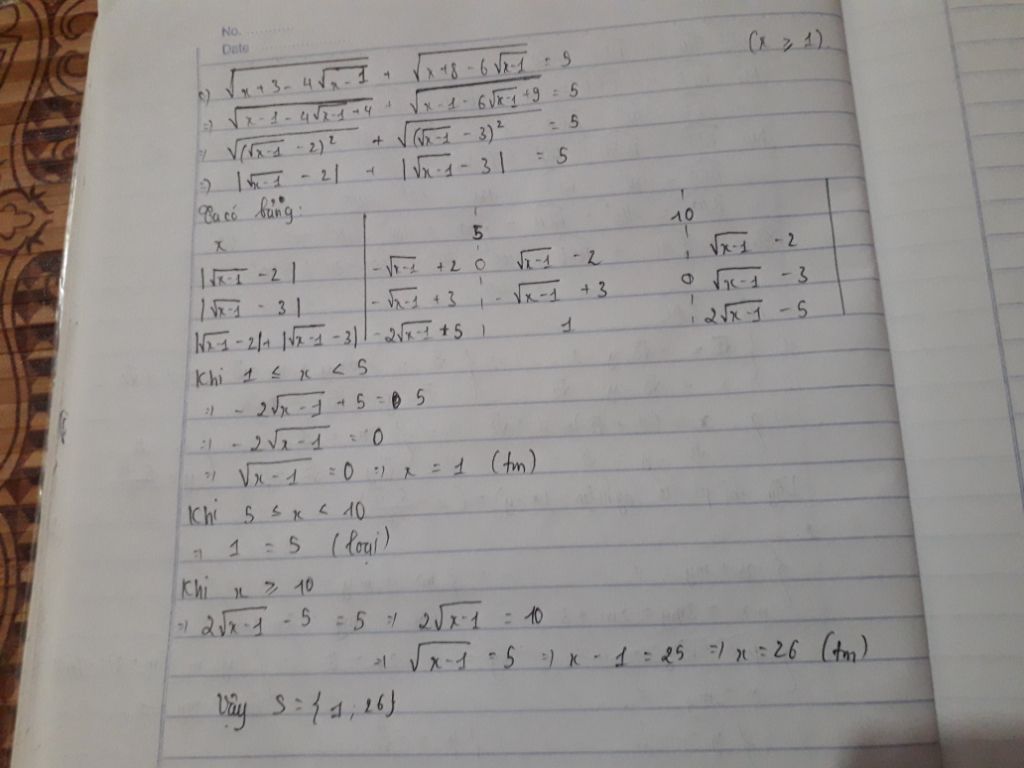 No.
Date
c) √(x+3-4√(x-1)) + √(x+8-6√(x-1)) = 9 (x ≥ 1)
=> √(x-1-4√(x-1)+4) + √(x-1-6√(x-1)+9) = 5
=> √((√(x-1) - 2)²) + √((√(x-1) - 3)²) = 5
=> |√(x-1) - 2| + |√(x-1) - 3| = 5
Ta có bảng:
x 5 10
|√(x-1) - 2| -√(x-1) + 2 0 √(x-1) - 2 √(x-1) - 2
|√(x-1) - 3| -√(x-1) + 3 -√(x-1) + 3 0 √(x-1) - 3
|√(x-1) - 2| + |√(x-1) - 3| -2√(x-1) + 5 1 2√(x-1) - 5
Khi 1 ≤ x < 5
=> -2√(x-1) + 5 = 5
=> -2√(x-1) = 0
=> √(x-1) = 0 => x = 1 (tm)
Khi 5 ≤ x < 10
=> 1 = 5 (loại)
Khi x ≥ 10
=> 2√(x-1) - 5 = 5 => 2√(x-1) = 10
=> √(x-1) = 5 => x - 1 = 25 => x = 26 (tm)
Vậy S = {1; 26}